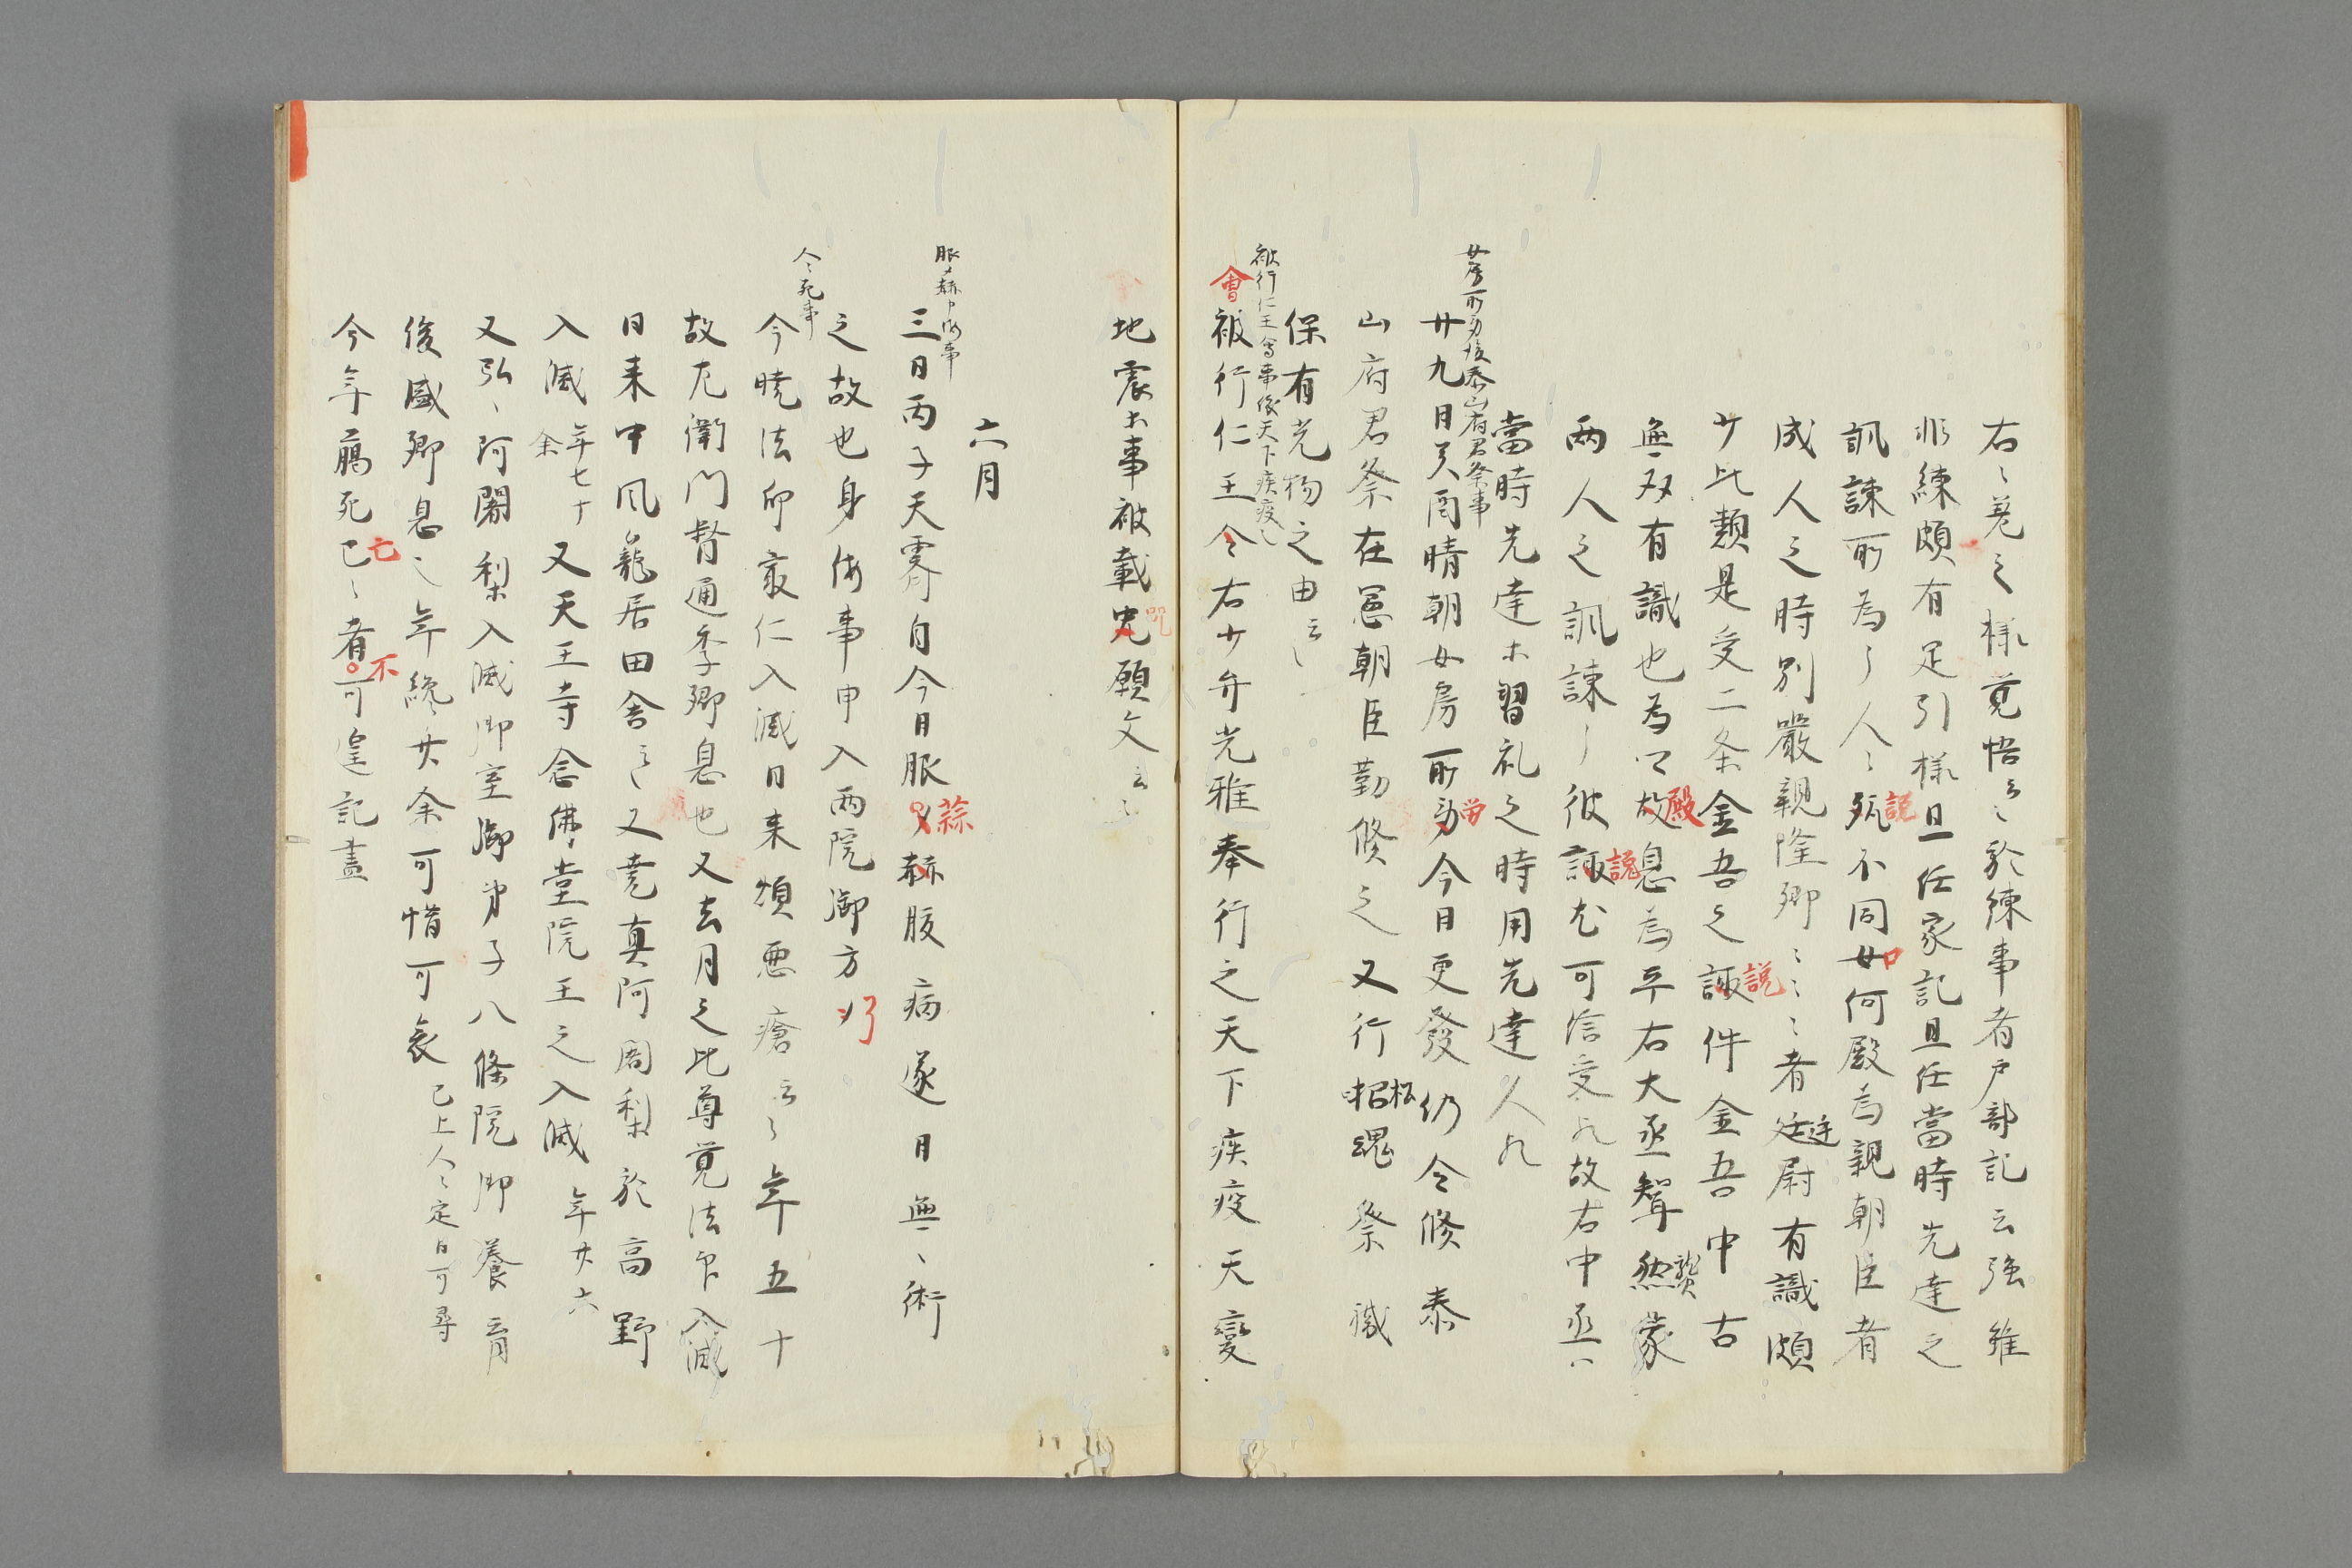 右〻晃之様覚悟云〻於練事者戸部記云強雖
非練頗有足引様且任家記且任當時先達之
諷諌所為了人〻 説 不同如何殿為親朝臣者
成人之時別嚴親隆卿〻〻〻者 廷 尉有識頗
少比類是受二条金吾之 説 件金吾中古
無双有識也為 殿 息為平右大丞 聟 蒙
両人之諷諌了彼 説 尤可信受凡故右中丞
當時先達等習礼之時用先達人凡
女房所労後泰山府君祭事
廿九日癸酉晴朝女房所労今日更發仍令修泰
山府君祭在憲朝臣勤修之又行招魂祭職
保有光物之由云〻
被行仁王會事依天下疾疫也
會 被行仁王會右少弁光雅奉行之天下疾疫天變
地震等事被載 咒 願文云〻
六月
服蒜事
三日丙子天霽自今日服 蒜 赤腹病逐日無〻術
之故也身仮事申入両院御方了
人〻死事
今暁法印宗仁入滅日来煩悪瘡云〻年五十
故左衛門督通季卿息也又去月之比尊覚法印入滅
日来中風籠居田舎云〻又堯真阿闍梨於高野
入滅年七十余又天王寺念佛堂院主之入滅年廿六
又弘〻阿闍梨入滅御室御弟子八條院御養育
俊盛卿息也年纔廿余可惜可哀已上人〻定日可尋
今年 死 亡 〻者 不 可遑記盡